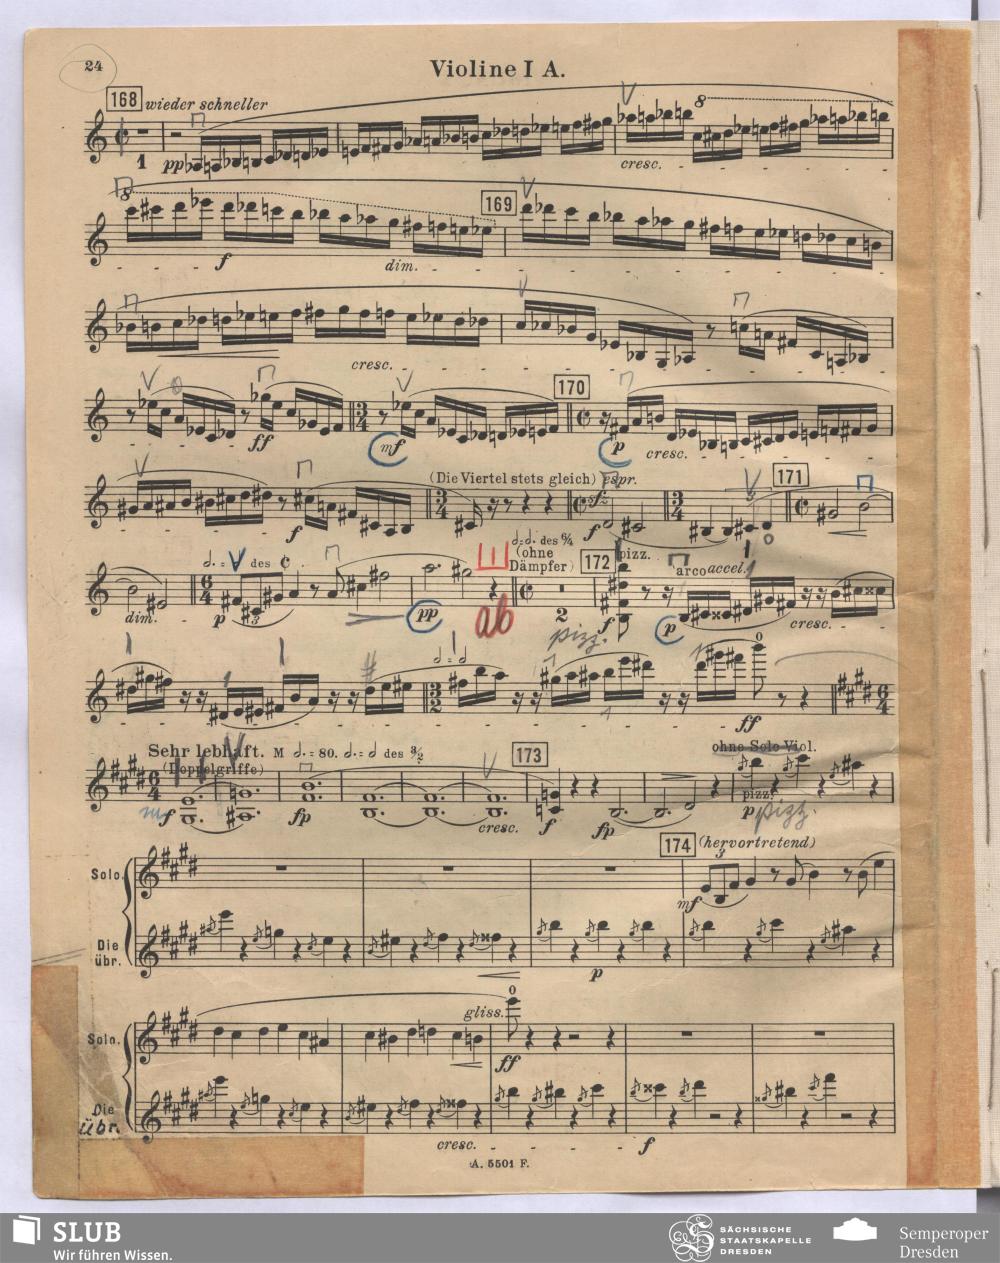 24
Violine I A.
168 wieder schneller
1 pp cresc.
8
8
169
f dim.
cresc.
170
ff mf p cresc.
(Die Viertel stets gleich) espr.
171
f f
des ¢
des 6/4
(ohne
Dämpfer)
172 pizz.
arco accel.
dim. p 3 pp ab 2 pizz. f p cresc.
ff
Sehr lebhaft. M 𝅗𝅥. = 80. 𝅗𝅥. = 𝅗𝅥 des 3/2
(Doppelgriffe)
173
ohne Solo Viol.
mf fp cresc. f fp pizz. p pizz.
174 (hervortretend)
Solo.
3
mf
Die
übr.
p
gliss.
Solo.
ff
Die
übr.
cresc. f
A. 5501 F.
SLUB
Wir führen Wissen.
SÄCHSISCHE
STAATSKAPELLE
DRESDEN
Semperoper
Dresden